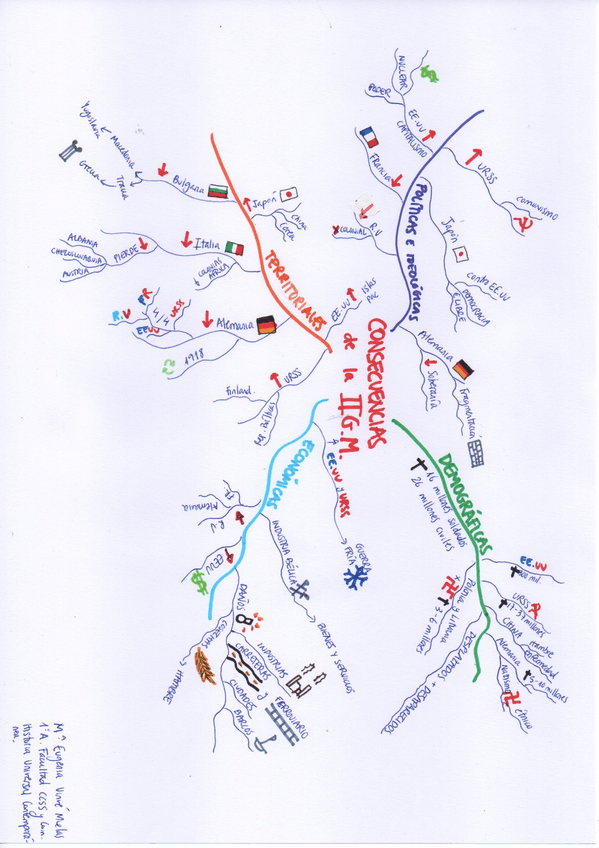 CONSECUENCIAS
de la II G.M.
POLÍTICAS E IDEOLÓGICAS
EE.UU
CAPITALISMO
PODER
NUCLEAR
URSS
comunismo
Francia
R.V
COLONIAL
Japón
contra EE.UU
DEMOCRACIA
E LIBRE
Alemania
Soberanía
Fragmentación
DEMOGRÁFICAS
16 millones soldados
26 millones civiles
EE.UU
300 mil.
URSS
17-37 millones
CHINA
Hambre
Enfermedad
Alemania
5-10 millones
Nazismo
étnico
Polonia y Lituania
7-6 millones
DESPLAZADOS + DESAPARECIDOS
ECONÓMICAS
+ EE.UU y URSS
GUERRA
FRÍA
INDUSTRIA BÉLICA
BIENES Y SERVICIOS
Alemania
Fr.
R.U
EEUU
DAÑOS
INDUSTRIAS
CARRETERAS y
FERROVIARIO
CIUDADES
BARCOS
HAMBRE
TERRITORIALES
Japón
China
Corea
Bulgaria
Macedonia
Yugoslavia
Tracia
Grecia
Italia
COLONIAS
ÁFRICA
PIERDE
ALBANIA
CHECOSLOVAQUIA
AUSTRIA
Alemania
4/4
FR
R.U
URSS
EEUU
1918
EE.UU
Islas
Pac
URSS
Finland.
Rep. Bálticas
Mª Eugenia Viñé Muelas
1ºA. Facultad CCSS y Com.
Historia Universal Contemporá-
nea.